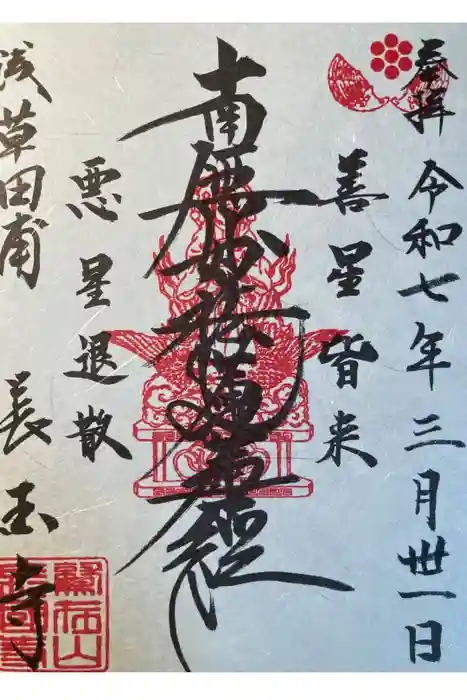 奉拝 令和七年三月卅一日
善星皆来
南無妙法蓮華経
悪星退散
浅草田甫 長国寺
鷲在山
長國寺